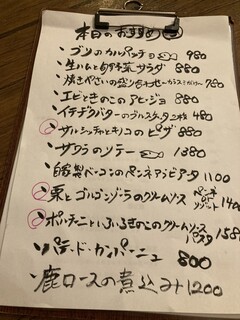 本日のおすすめ
・ブリのカルパッチョ 980
・生ハムと旬野菜サラダ 880
・焼きやさいの盛り合わせ 780
・エビときのこのアヒージョ 880
・イチヂクバターのブルスケッタ 2枚 480
・サルシッチャとキノコのピザ 980
・サワラのソテー 1380
・自家製ベーコンのペンネアラビアータ 1100
・栗とゴルゴンゾーラのクリームソース ペンネ or リゾット 1400
・ポルチーニといろいろきのこのクリームソース パスタ 1580
・パテ・ド・カンパーニュ 800
・鹿ロースの煮込み 1200